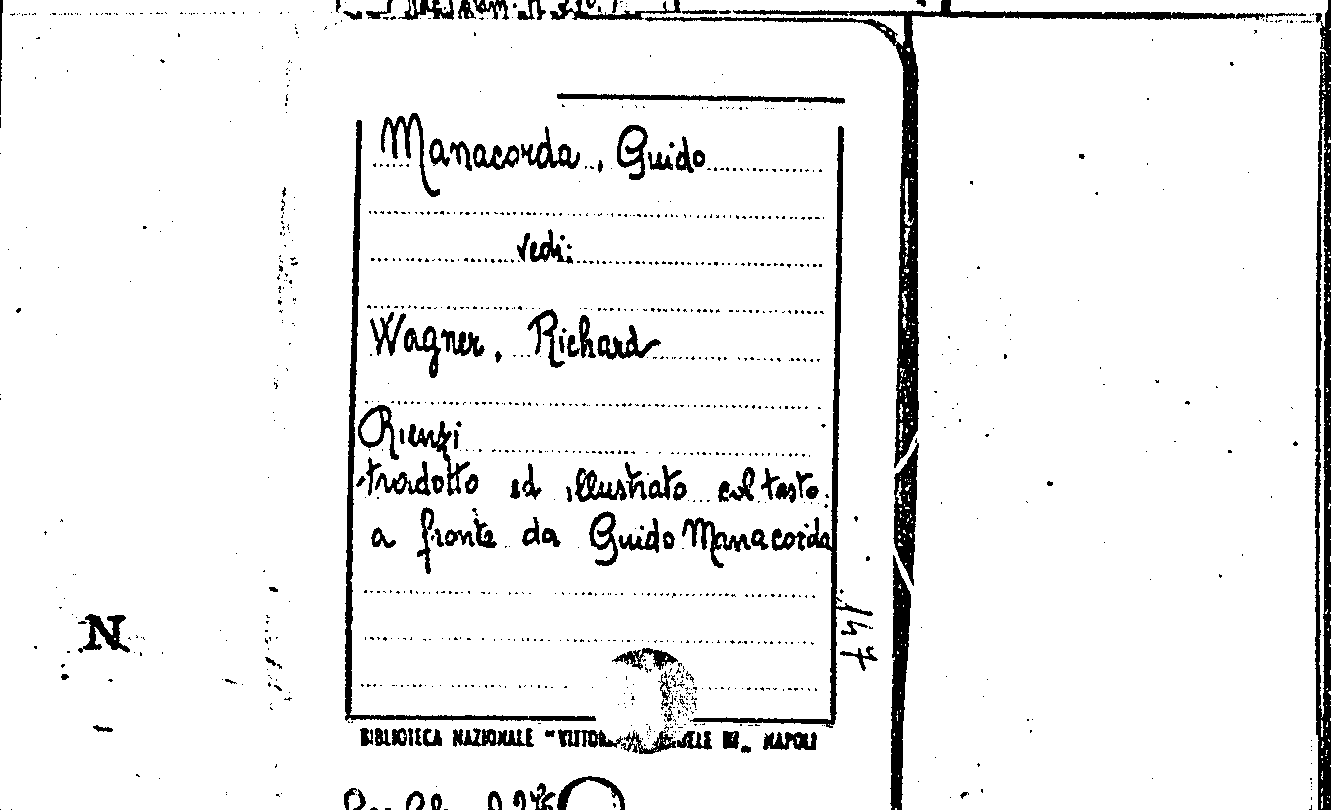 Manacorda, Guido
vedi:
Wagner, Richard
Rienzi
tradotto ed illustrato col testo
a fronte da Guido Manacorda
N
BIBLIOTECA NAZIONALE "VITTORIO EMANUELE III" NAPOLI